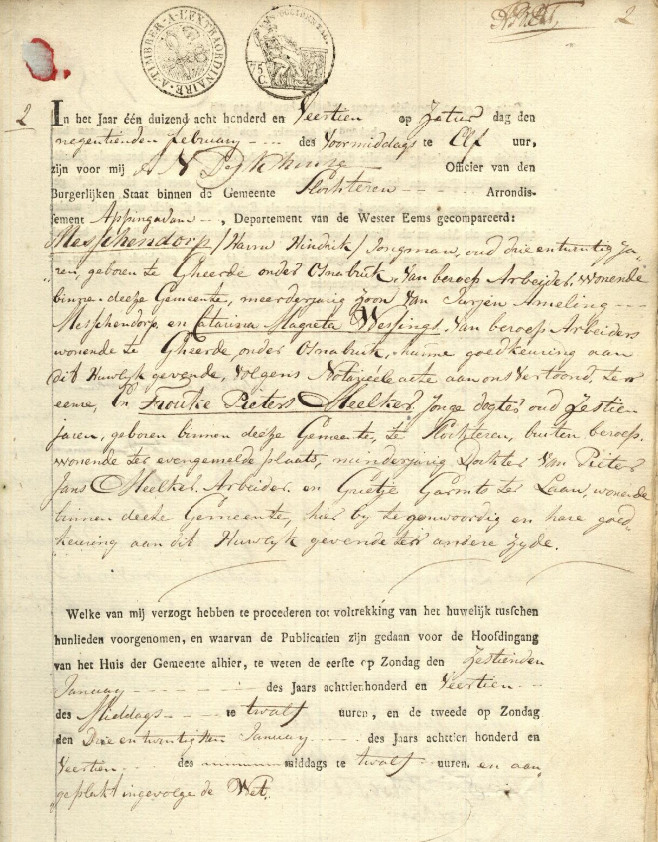 2
TIMBRE·A·L'EXTRAORDINAIRE·A·
75 C
2
In het Jaar één duizend acht honderd en Veertien op Zatur dag den
negentienden February des Voormiddags te Elf uur,
zijn voor mij N Officier van den
Burgerlijken Staat binnen de Gemeente Slochteren Arrondis-
sement Appingadam, Departement van de Wester Eems gecompareerd:
Messchendorp /Harm Hindrik/ Jongman, oud drie en twintig Ja-
"ren, geboren te Gheerde onder Osnabruk, van beroep Arbeider, wonende
binnen deeze Gemeente, meerderjarig zoon van Jurjen Ameling
Messchendorp, en Catarina Magreta Wessings, van beroep Arbeiders
wonende te Gheerde, onder Osnabruk, hunne goedkeuring aan
dit Huwlyk gevende, volgens Notarieele acte aan ons vertoond, ter
eenre, En Frouke Pieters Meelker. Jonge dogter oud Zestien
jaren, geboren binnen deeze Gemeente, te Slochteren, buiten beroep.
wonende ter evengemelde plaats, minderjarig Dochter van Pieter
Jans Meelker. Arbeider. en Grietje Garmts ter Laan, wonende
binnen deeze Gemeente, hier by tegenwoordig en hare goed-
keuring aan dit Huwlyk gevende ter andere zyde.
Welke van mij verzogt hebben te procederen tot voltrekking van het huwelijk tusschen
hunlieden voorgenomen, en waarvan de Publicatien zijn gedaan voor de Hoofdingang
van het Huis der Gemeente alhier, te weten de eerste op Zondag den Zestienden
January des Jaars achttienhonderd en Veertien
des Middags te twalf uuren, en de tweede op Zondag
den Drie en twintigsten January des Jaars achttien honderd en
Veertien des middags te twalf uuren. en aan
"geplakt ingevolge de Wet.